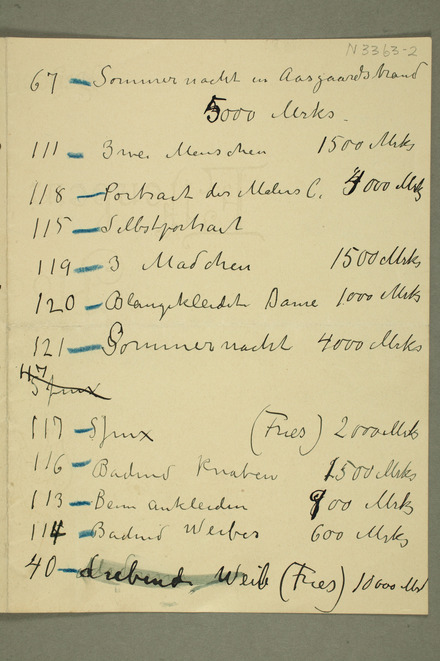 N 3363-2
67 - Sommernacht in Aasgaardstrand
5000 Mrks.
111 - Zwei Menschen 1500 Mrks
118 - Portrait des Malers C. 4000 Mrks
115 - Selbstportrait
119 - 3 Madchen 1500 Mrks
120 - Blaugekleidete Dame 1000 Mrks
121 - Sommernacht 4000 Mrks
47
Sfinx
117 - Sfinx (Fries) 2000 Mrks
116 - Badend Knaben 1500 Mrks
113 - Beim ankleiden 900 Mrks
114 - Badend Weiber 600 Mrks
40 - Weib (Fries) 10000 Mrk